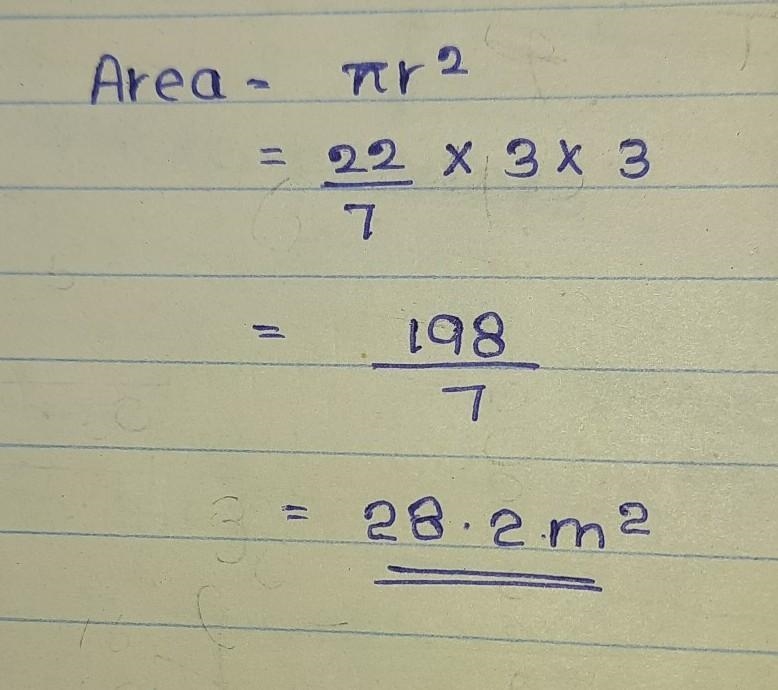 Area = πr²
= 22/7 × 3 × 3
= 198/7
= 28.2 m²